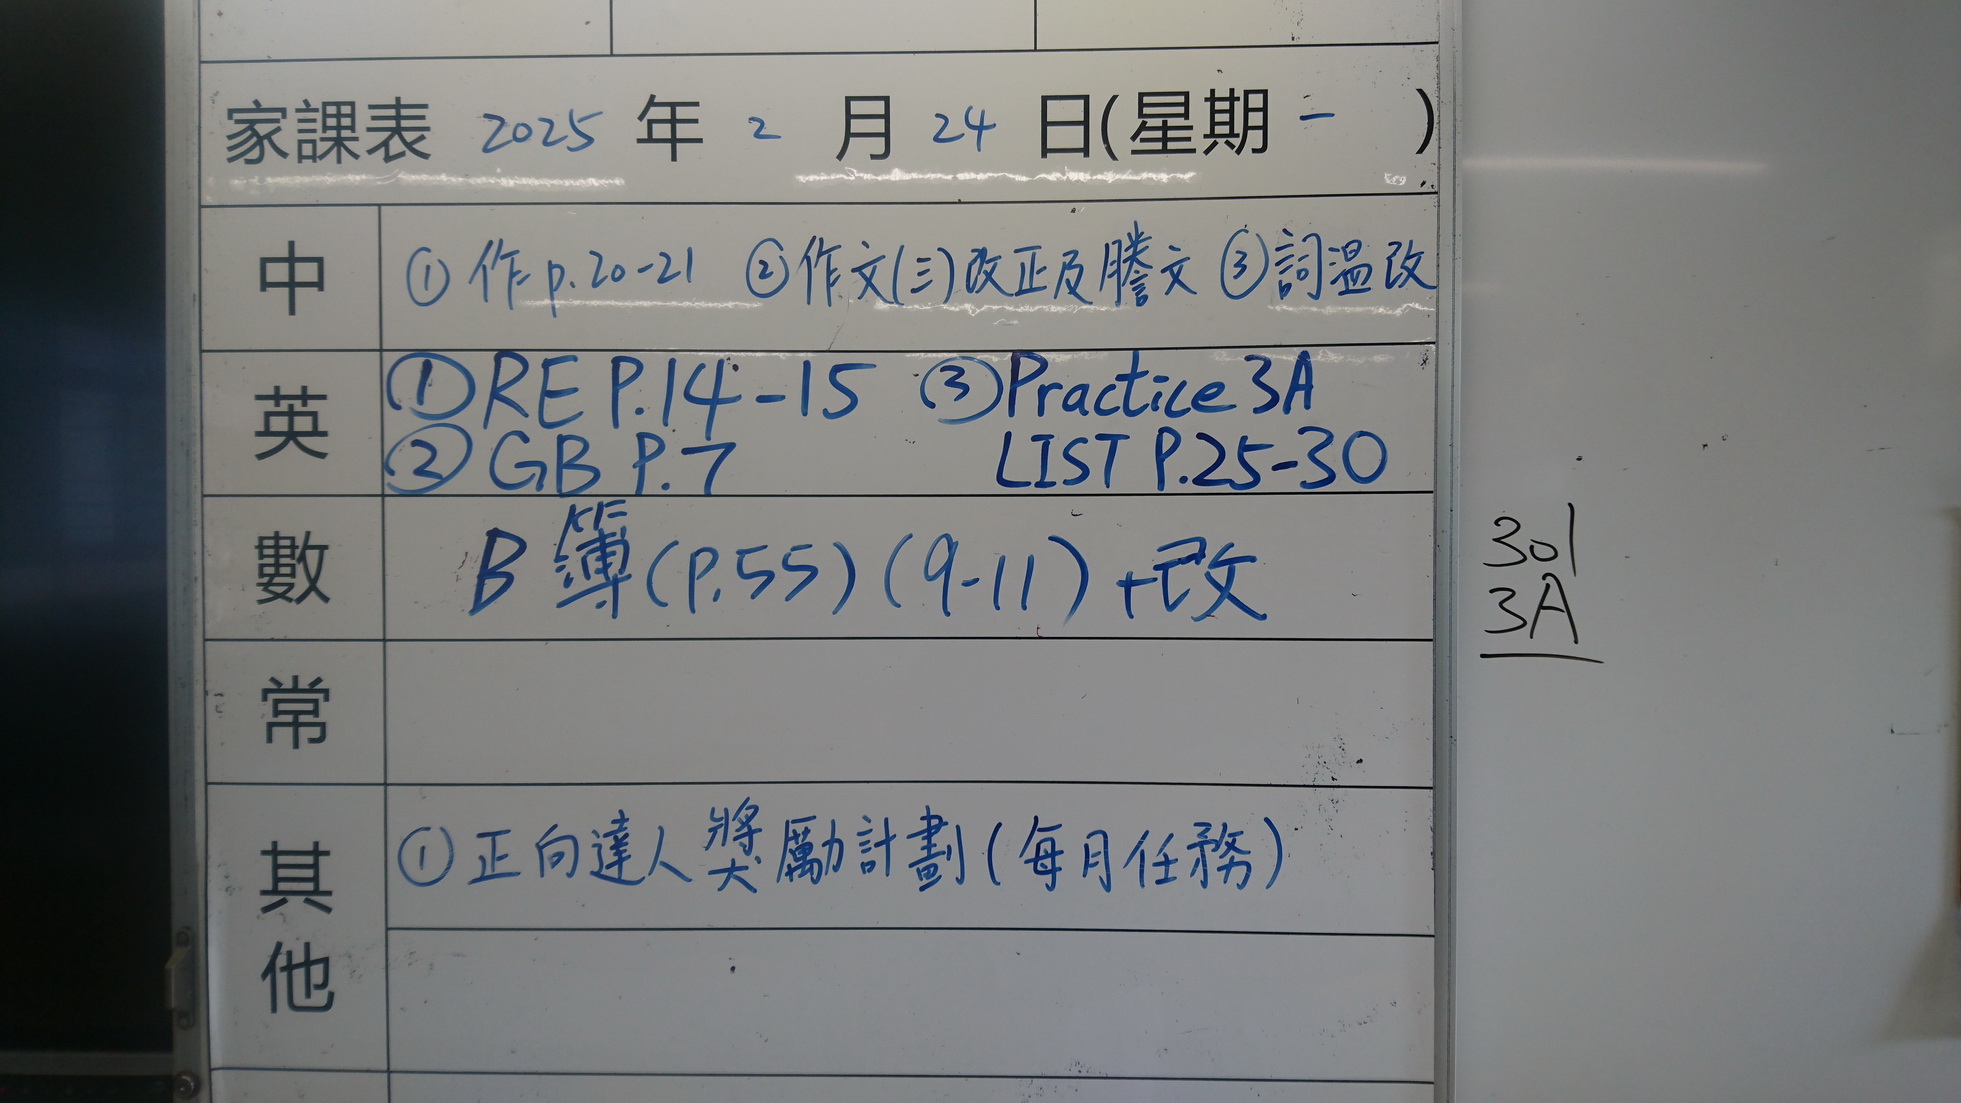 家課表 2025 年 2 月 24 日(星期一 )
中 ①作 p.20-21 ②作文(三)改正及謄文 ③詞溫改
英 ①RE P.14-15 ③Practice 3A
②GB P.7 LIST P.25-30
數 B簿(P.55)(9-11)+改
常
其他 ①正向達人獎勵計劃(每月任務)
301
3A